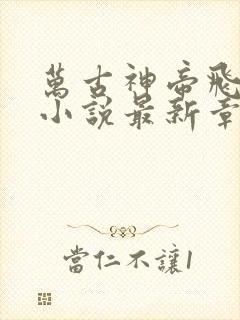 萬古神帝飛
小說最新章
當仁不讓1